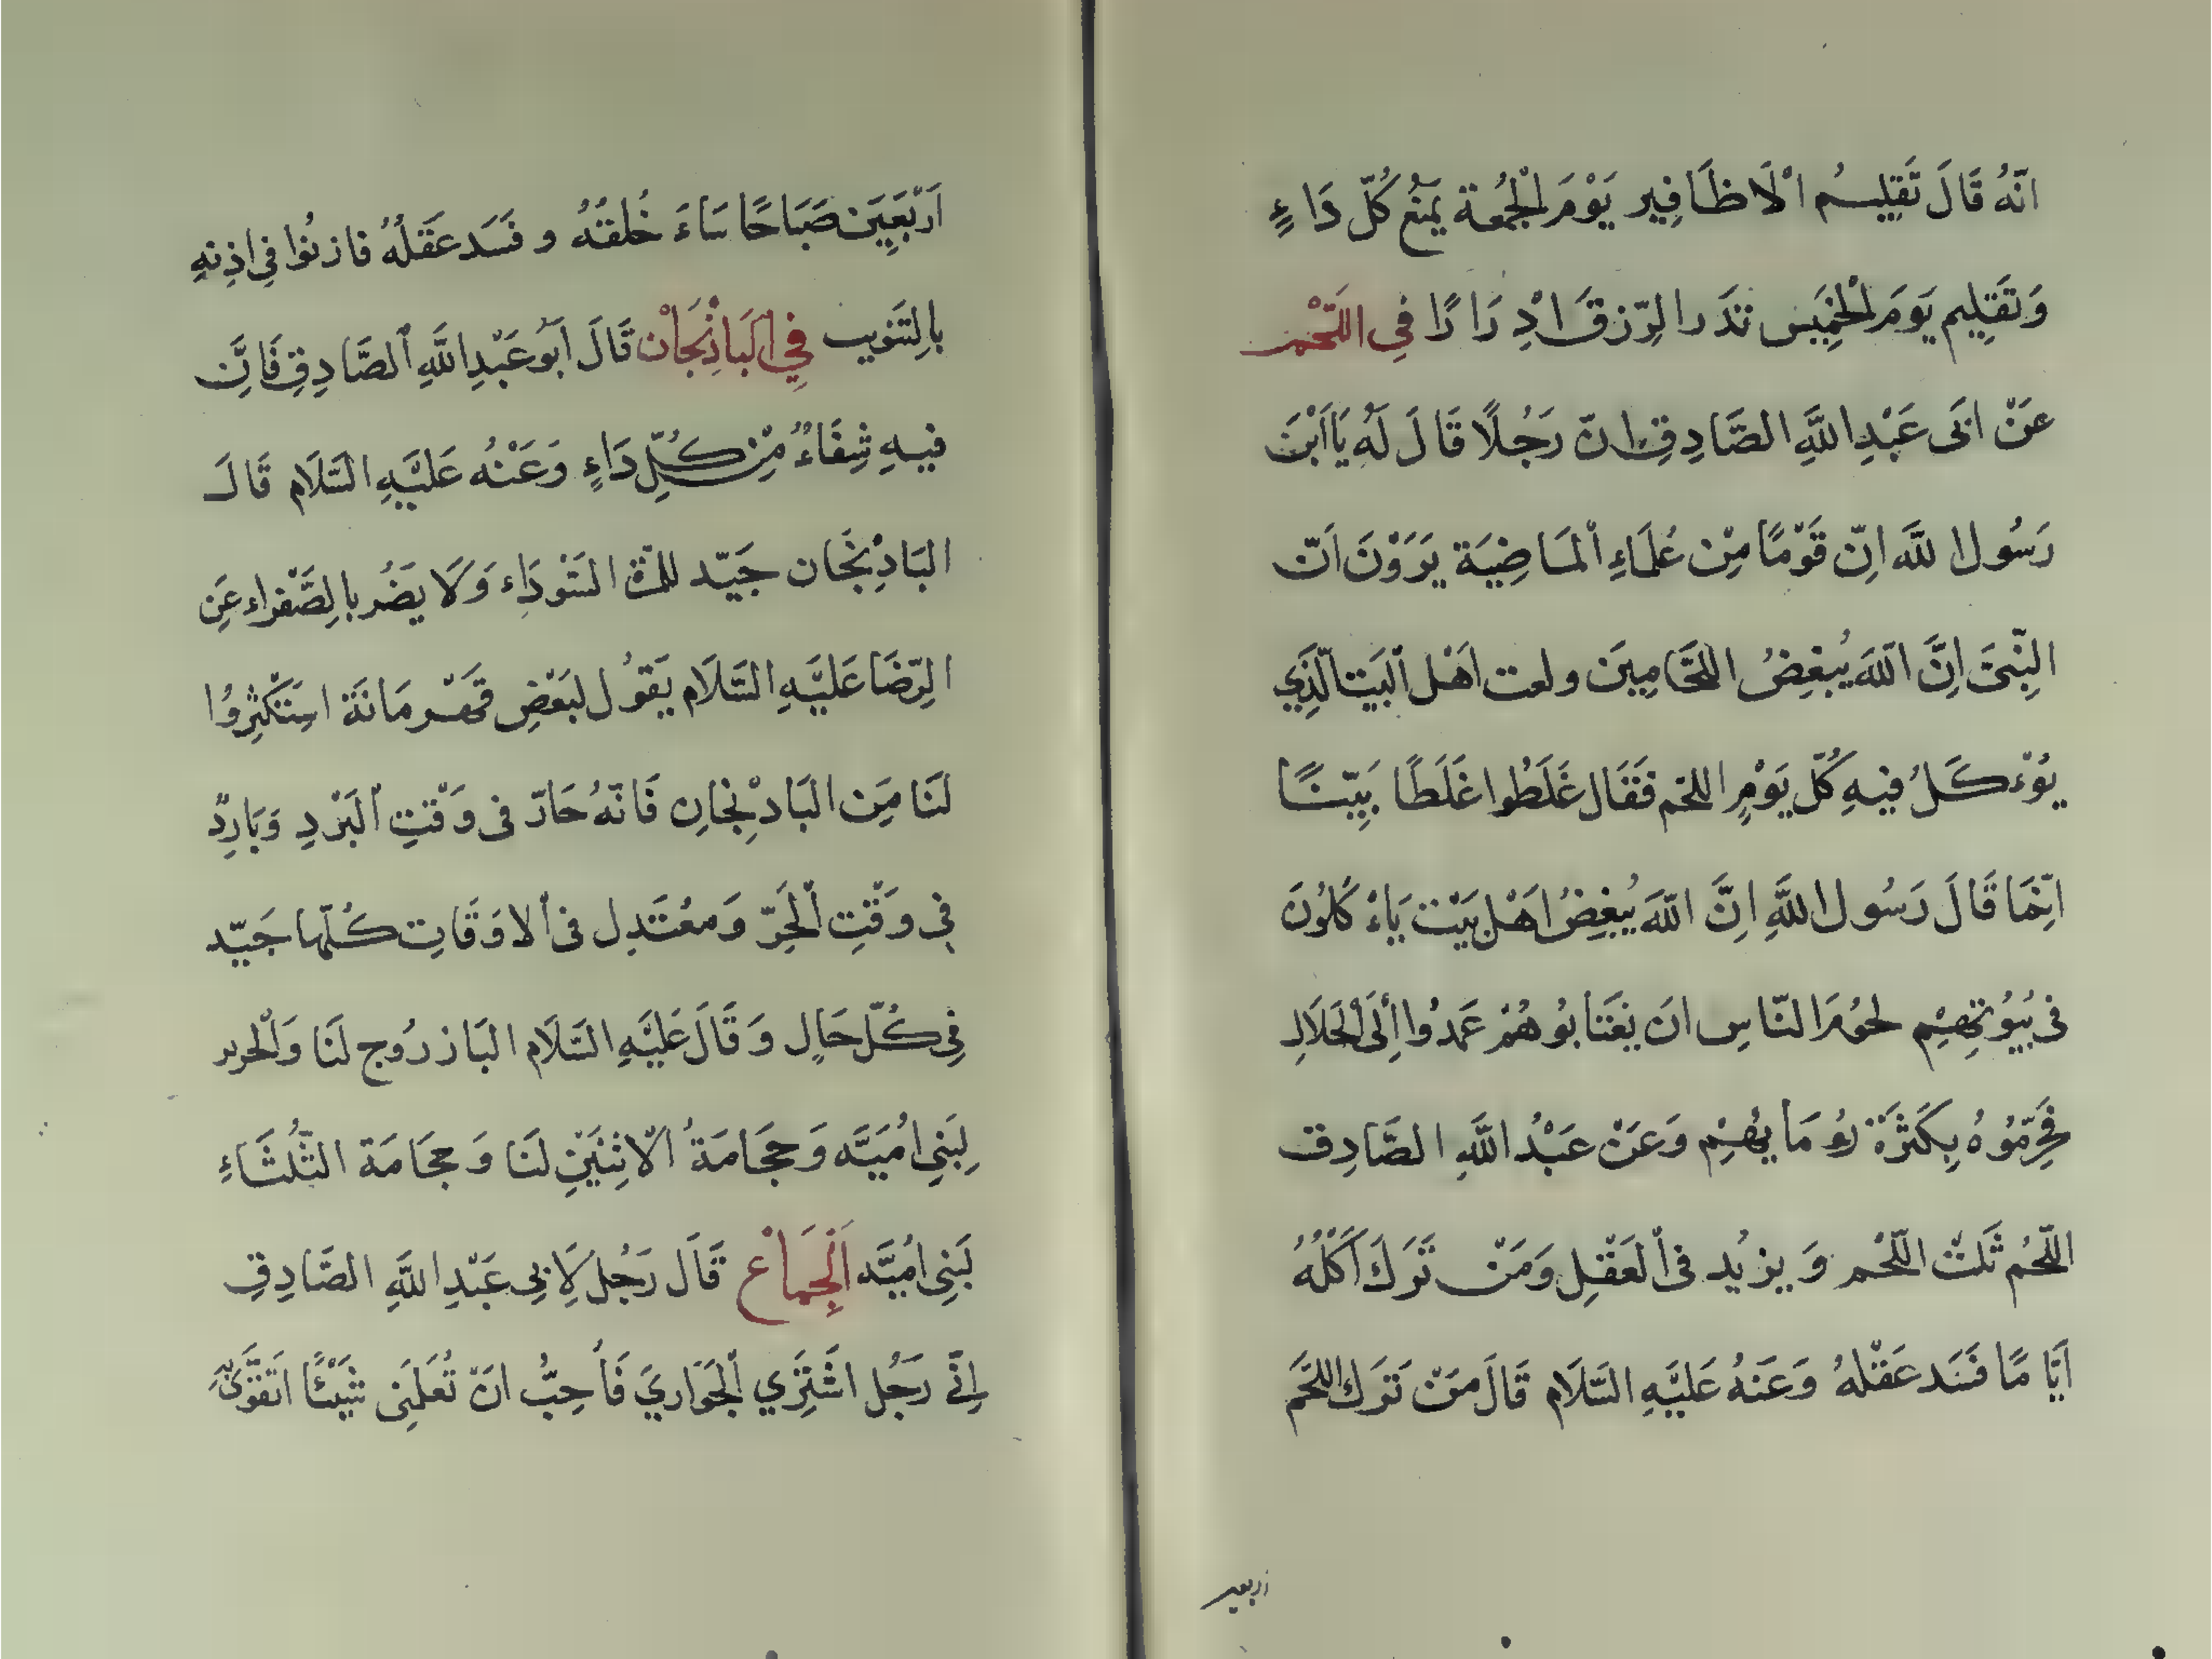 انّهُ قَالَ تَقلِيمُ اْلَاظَافِير يَوْمَ الْجُمُعة يَمنَعُ كُلّ دَاءٍ
وَتَقلِيم يَوَمَ الْخَمِيس تدَر الرّزقَ اْدِرَارًا فِي اللَّحْم
عَنْ ابَى عَبْدِ اللَّهِ الصَّادِقِ انّ رَجُلًا قَالَ لَهُ يَا اَبْنَ
رَسُول اللَّه اِنّ قَوْمًا مِنْ عُلَمَاءِ اْلمَاضِيَة يَرَوْنَ اَنّ
النِبّىَ اِنَّ اللّهَ يُبغِضُ اللحَّامِيَن ولعت اَهْل اْلبَيت الّذِي
يُوْءكَلُ فيهِ كُلّ يَوْمٍ اللحَم فَقَال غَلَطُوا غَلَطًا بَيّنًا
اِنّمَا قَالَ رَسُول اللَّهِ اِنَّ اللّهَ يُبغِضُ اهْل بَيْت يَاءْكُلُونَ
فى بُيُوتِهِمِ لحوُمَ النّاسِ انَ يَغتَابُوهُمْ عَمدُوا اِلَى اْلحَلَالِ
فَحَرّمُوهُ بِكَثرَة رُومَايهُمِ وَعَنْ عَبْدُ اللَّهِ الصَّادِق
اللّحْمُ ثَلتْ اللّحُم وَيزيُد فى اْلعَقْلِ وَمَنْ تَرَكَ اَكْلُهُ
اَيّا مًا فَسَد عَقْلهُ وَعَنهُ عَليَهِ السَّلَام قَالَ مَنْ تَرَك اللحَّم
اربعين
اَرْبَعِيَن صَبَاحًا سَاءَ خُلقُهُ و فَسَد عَقَلهُ فاذنُوا فِى اذِنهِ
بالِتَنويب فِي الَبَاذْنِجَاْن قَالَ اَبوُ عَبْدِ اللَّهِ الصَّادِقِ فَانَّ
فيهِ شِفَاءٌ مِّن كُلِّ دَاءٍ وَعَنْهُ عَليَهِ السَّلَام قَالَ
البَاذِنْجَان جَيّد للمّرة السَوْدَاء وَلَا يَضُر بالِصَّفراء عَنِ
الرّضَا عَليَهِ السَّلَام يَقوُل لبَعْضِ قَهْرمَانَة اسِتَكْثِرُوا
لنَا مِنَ البَادْنِجَانِ فَانّهُ حَارّ فى وَقْتِ اْلبَرْدِ وَبَارِدٌ
فِى وَقْتِ اْلحَرّ وَمعُتَدِل فى اْلاوَقَاتِ كُلّها جَيّد
فِى كُلّ حَالٍ وَقَالَ عَليَهِ السَّلَام البَاذرُوج لنَا وَاْلحرىر
لِبَنِى امُيَّه وَحجَامَةُ الْاثِنَيْنِ لنَا وَحجَامَة الثّلُثَاءِ
لَبنِى امُيَّه اَلْجِمَاْع قَالَ رَجُل لِاَبِى عَبْدِ اللَّهِ الصَّادِقِ
اِنّى رَجُل اشَترَي اْلجَوَاريَ فَاُحِبُّ انَ تُعَلمَنِى شَيْئًا اتَقوّى